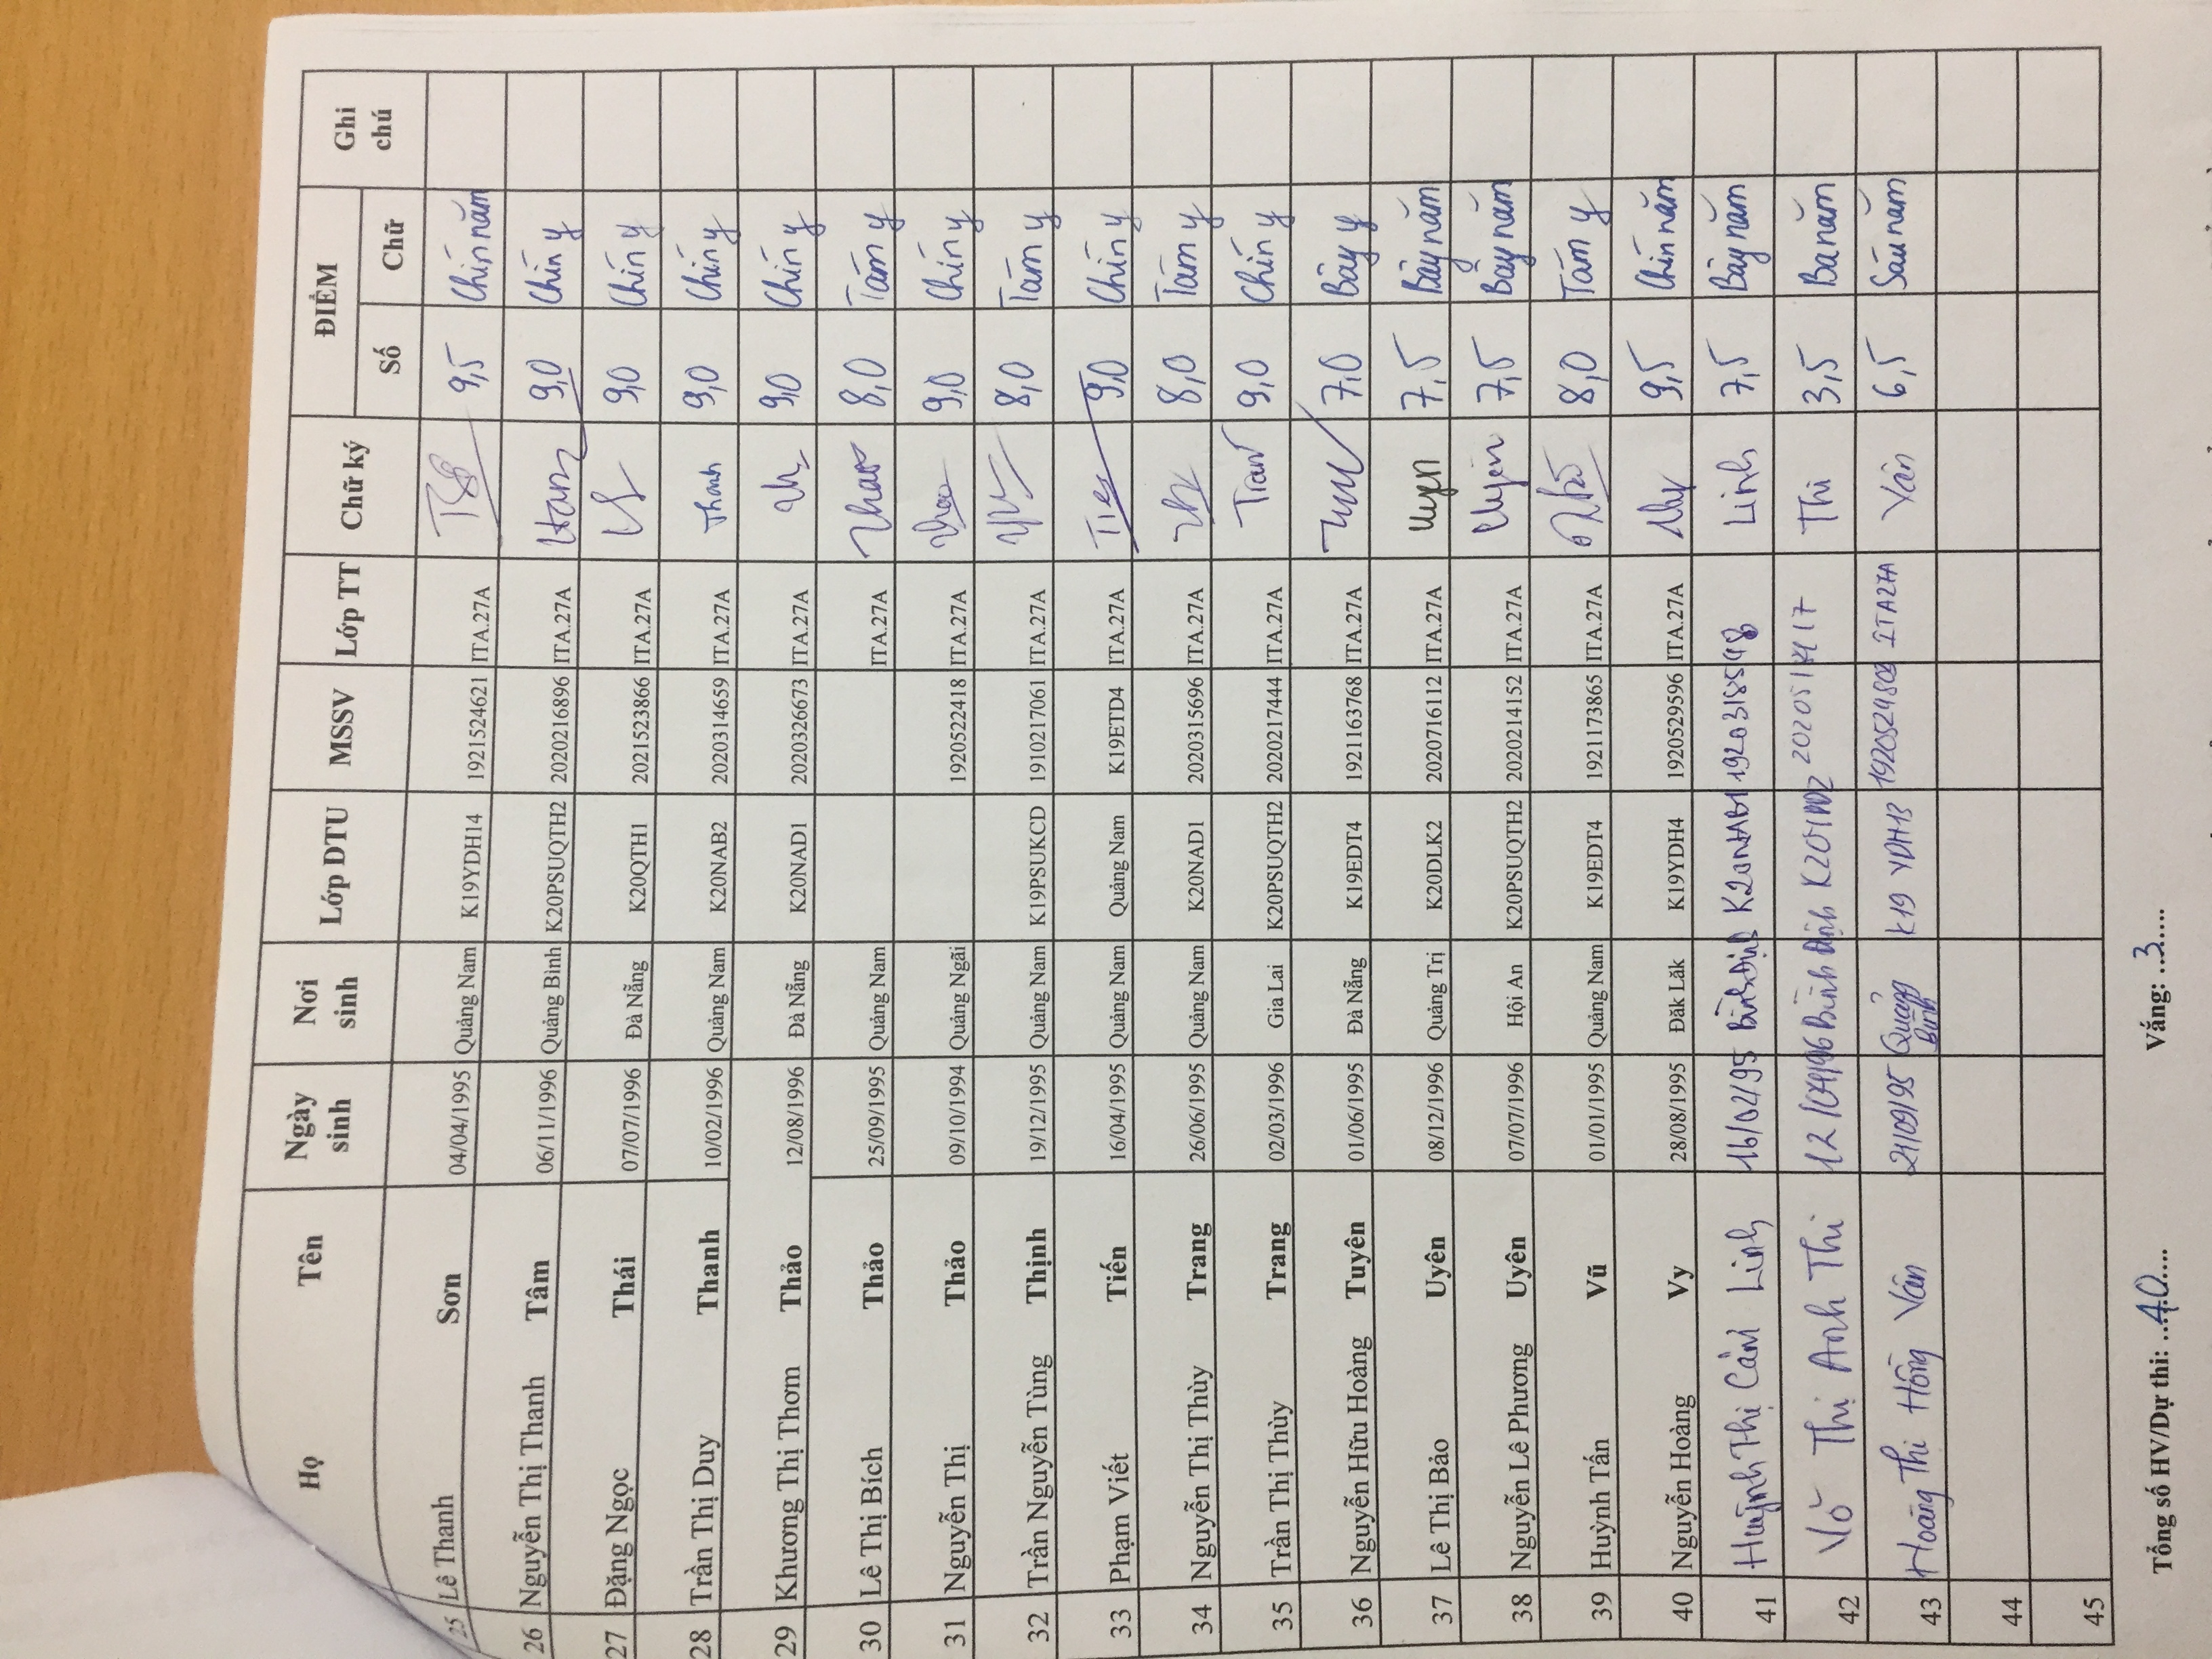 Họ Tên Ngày sinh Nơi sinh Lớp DTU MSSV Lớp TT Chữ ký ĐIỂM Ghi chú
Số Chữ
25 Lê Thanh Sơn 04/04/1995 Quảng Nam K19YDH14 1921524621 ITA.27A 9,5 Chín năm
26 Nguyễn Thị Thanh Tâm 06/11/1996 Quảng Bình K20PSUQTH2 2020216896 ITA.27A 9,0 Chín y
27 Đặng Ngọc Thái 07/07/1996 Đà Nẵng K20QTH1 2021523866 ITA.27A 9,0 Chín y
28 Trần Thị Duy Thanh 10/02/1996 Quảng Nam K20NAB2 2020314659 ITA.27A Thanh 9,0 Chín y
29 Khương Thị Thơm Thảo 12/08/1996 Đà Nẵng K20NAD1 2020326673 ITA.27A 9,0 Chín y
30 Lê Thị Bích Thảo 25/09/1995 Quảng Nam ITA.27A Thao 8,0 Tám y
31 Nguyễn Thị Thảo 09/10/1994 Quảng Ngãi 1920522418 ITA.27A Thao 9,0 Chín y
32 Trần Nguyễn Tùng Thịnh 19/12/1995 Quảng Nam K19PSUKCD 1910217061 ITA.27A 8,0 Tám y
33 Phạm Viết Tiến 16/04/1995 Quảng Nam Quảng Nam K19ETD4 ITA.27A Tien 9,0 Chín y
34 Nguyễn Thị Thùy Trang 26/06/1995 Quảng Nam K20NAD1 2020315696 ITA.27A 8,0 Tám y
35 Trần Thị Thùy Trang 02/03/1996 Gia Lai K20PSUQTH2 2020217444 ITA.27A Tran 9,0 Chín y
36 Nguyễn Hữu Hoàng Tuyên 01/06/1995 Đà Nẵng K19EDT4 1921163768 ITA.27A 7,0 Bảy y
37 Lê Thị Bảo Uyên 08/12/1996 Quảng Trị K20DLK2 2020716112 ITA.27A Uyen 7,5 Bảy năm
38 Nguyễn Lê Phương Uyên 07/07/1996 Hội An K20PSUQTH2 2020214152 ITA.27A Uyên 7,5 Bảy năm
39 Huỳnh Tấn Vũ 01/01/1995 Quảng Nam K19EDT4 1921173865 ITA.27A 8,0 Tám y
40 Nguyễn Hoàng Vy 28/08/1995 Đăk Lăk K19YDH4 1920529596 ITA.27A 9,5 Chín năm
41 Huỳnh Thị Cẩm Linh 16/02/95 Bình Định K20NAB1 1920318598 Linh 7,5 Bảy năm
42 Võ Thị Anh Thi 12/04/96 Bình Định Thi 3,5 Ba năm
43 Hoàng Thị Hồng Vân 21/09/95 Quảng Bình K19 YDH13 ITA27A Vân 6,5 Sáu năm
44
45
Tổng số HV/Dự thi: ...40.... Vắng: ..3....